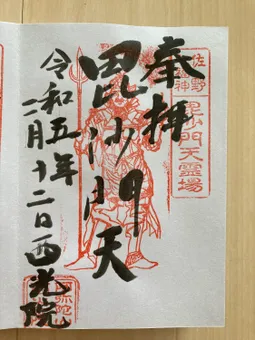 奉拝
毘沙門天
令和五年
二月十二日
西光院
佐野
毘沙門天霊場